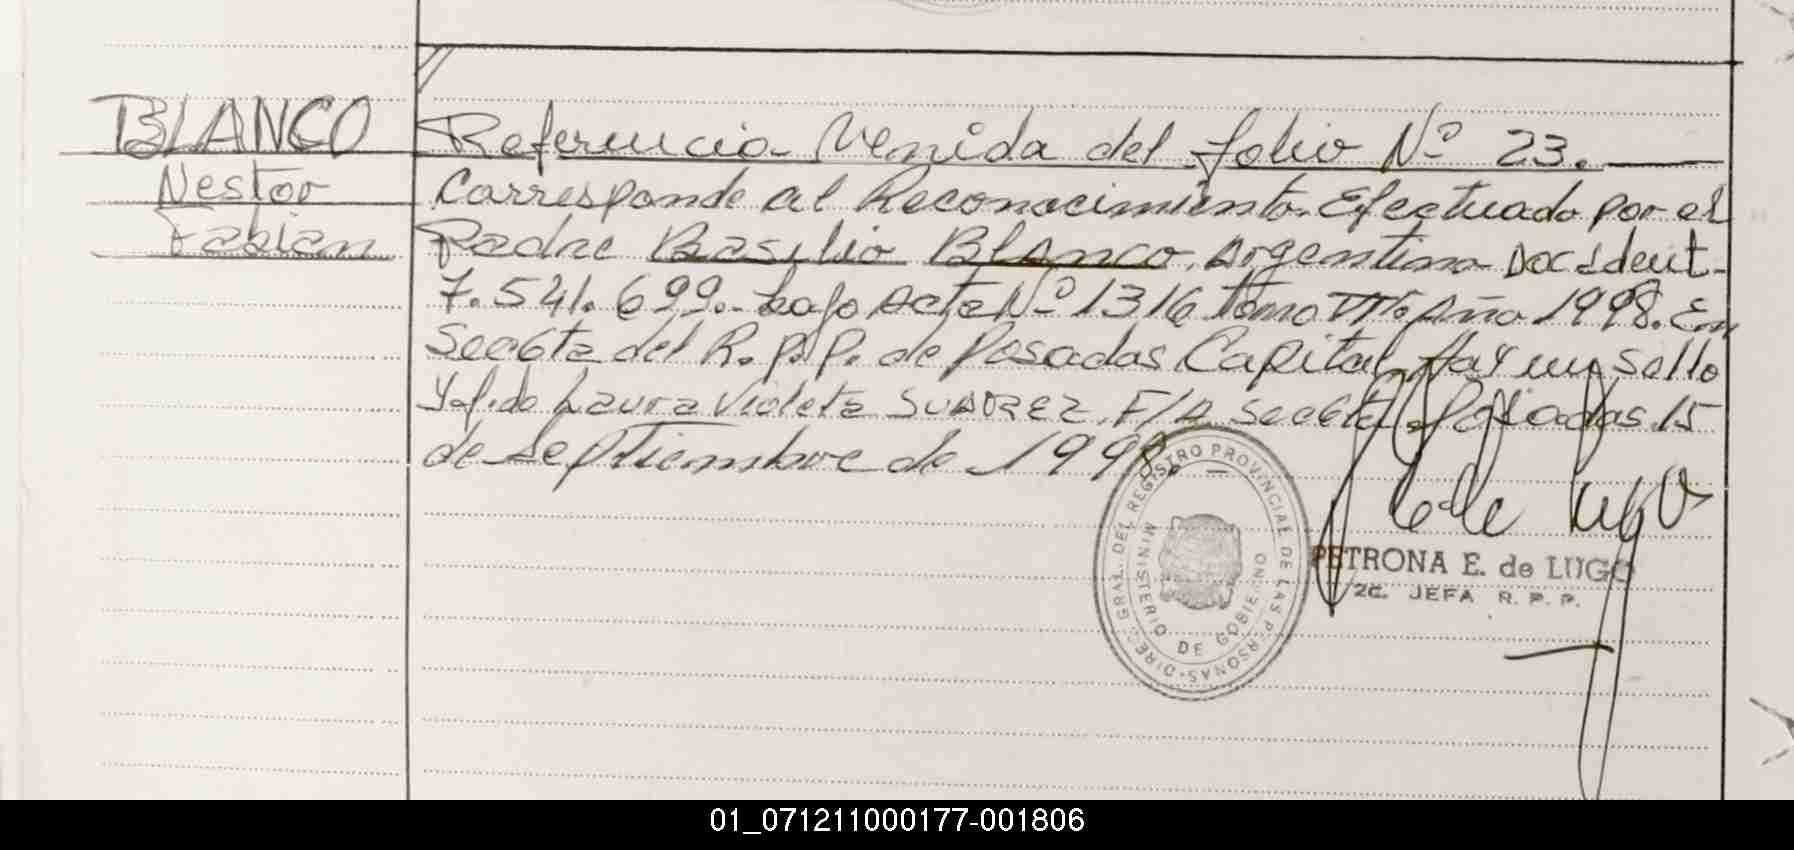 BLANCO
Nestor
Fabian
Referencia Venida del folio Nº 23.
Corresponde al Reconocimiento Efectuado por el
Padre Basilio Blanco, Argentino Doc Ident.
7.541.699.- bajo Acta Nº 1316 Tomo VII. Año 1998. En
Secc 6ta del R. P. P. de Posadas Capital. Hay un sello
y f.do Laura Violeta SUAREZ. F/A Secc 6ta. Posadas 15
de Septiembre de 1998.
DIREC. GRAL. DEL REGISTRO PROVINCIAL DE LAS PERSONAS
MINISTERIO DE GOBIERNO
de Lugo
PETRONA E. de LUGO
2C. JEFA R. P. P.
01_071211000177-001806